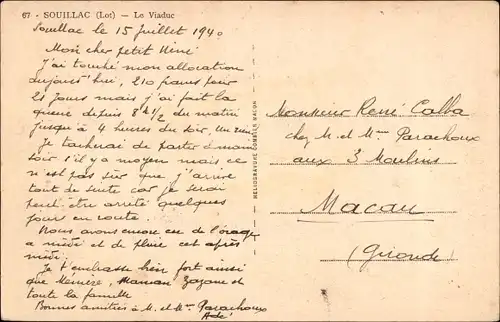 67 - SOUILLAC (Lot) - Le Viaduc
Souillac le 15 juillet 1940
Mon cher petit Niné
J'ai touché mon allocation
aujourd'hui, 210 francs pour
21 jours mais j'ai fait la
queue depuis 8h 1/2 du matin
jusqu'à 4 heures du soir.
Je tacherai de partir demain
soir s'il y a moyen mais ce
n'est pas sûr que j'arrive
tout de suite car je serai
peut-être arrêté quelques
jours en route.
Nous avons encore eu de l'orage
a midi et de pluie cet après
midi.
Je t'embrasse bien fort ainsi
que Memère, Maman Zazane et
toute la famille
Bonnes amitiés à M. et Mme Parachoux
HELIOGRAVURE COMBIER MACON
Monsieur René Calba
chez M. et Mme Parachoux
aux 3 Moulins
Macau
(Gironde)